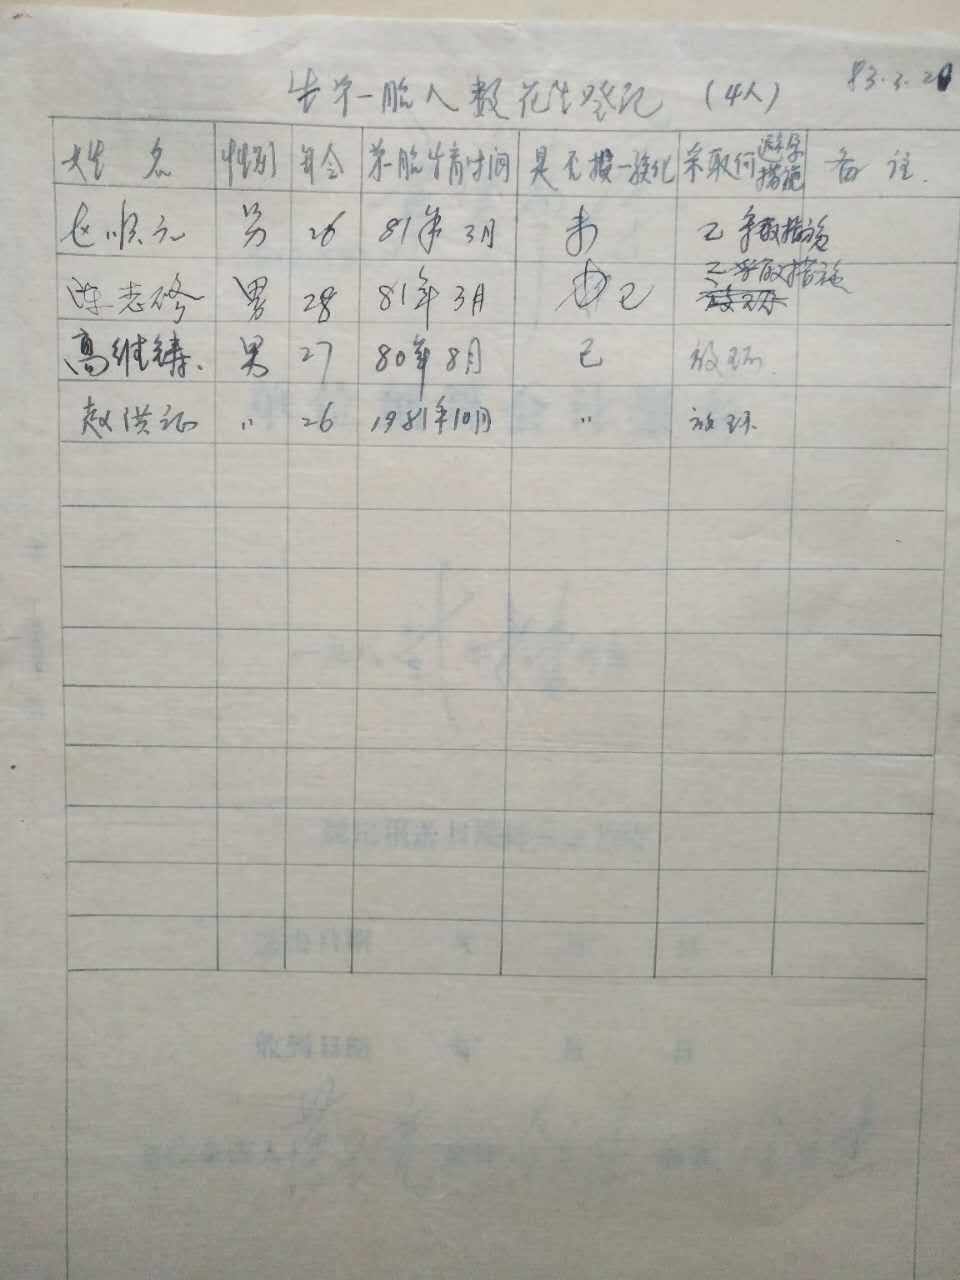 生第一胎人数花生登记 (4人) 83.3.20
姓名 性别 年令 第一胎情时间 是否 一孩化 采取何避孕措施 备注
赵顺元 男 26 81年3月 未 已采取措施
陈志修 男 28 81年3月 已 已采取措施
高维铸 男 27 80年8月 已 放环
赵洪证 〃 26 1981年10月 〃 放环